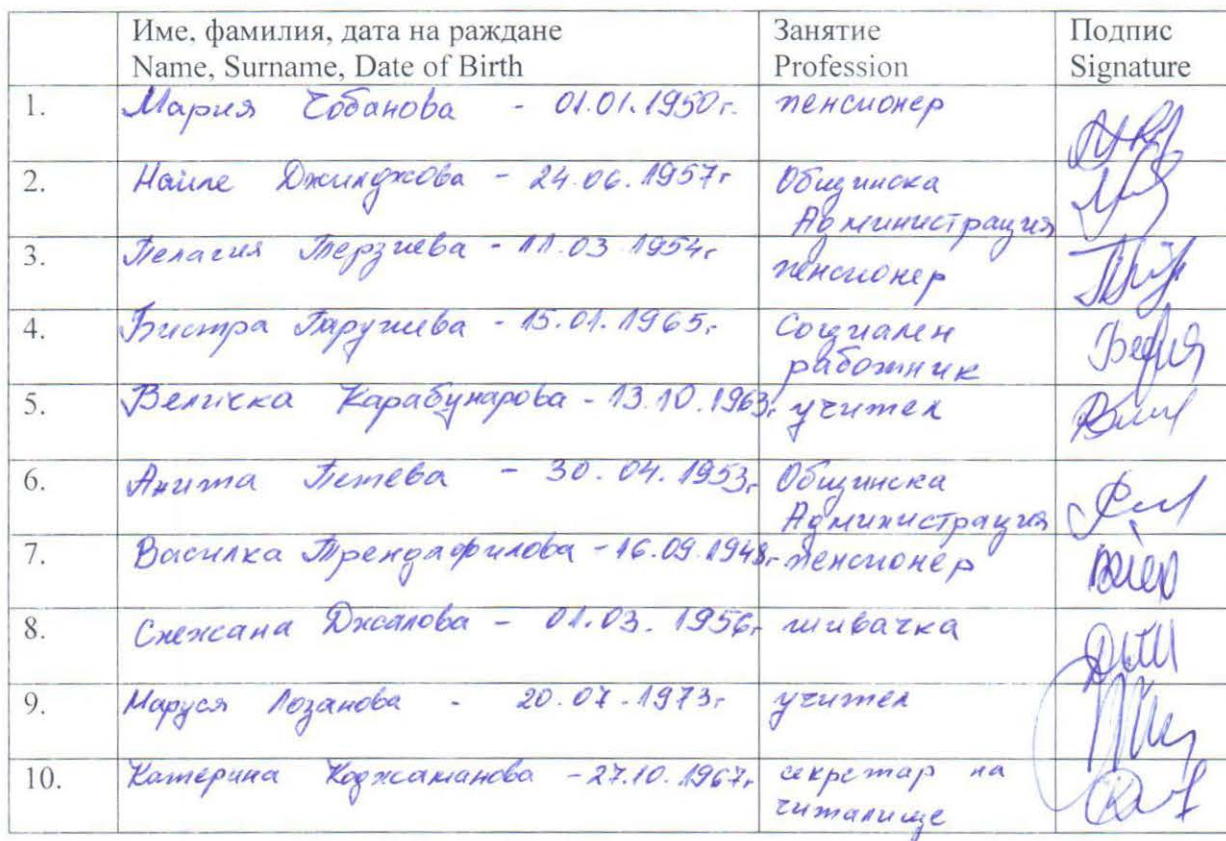 Име, фамилия, дата на раждане Занятие Подпис
Name, Surname, Date of Birth Profession Signature
1. Мария Чобанова - 01.01.1950г. пенсионер
2. Наиле Джилджова - 24.06.1957г Общинска
Администрация
3. Пелагия Терзиева - 11.03.1954г пенсионер
4. Бистра Паружиева - 15.01.1965г Социален
работник
5. Величка Карабунарова - 13.10.1963г учител
6. Анита Петева - 30.04.1953г Общинска
Администрация
7. Василка Трендафилова - 16.09.1948г пенсионер
8. Снежана Джалова - 01.03.1956г шивачка
9. Маруся Лозанова - 20.07.1973г учител
10. Катерина Коджаманова - 27.10.1967г секретар на
читалище